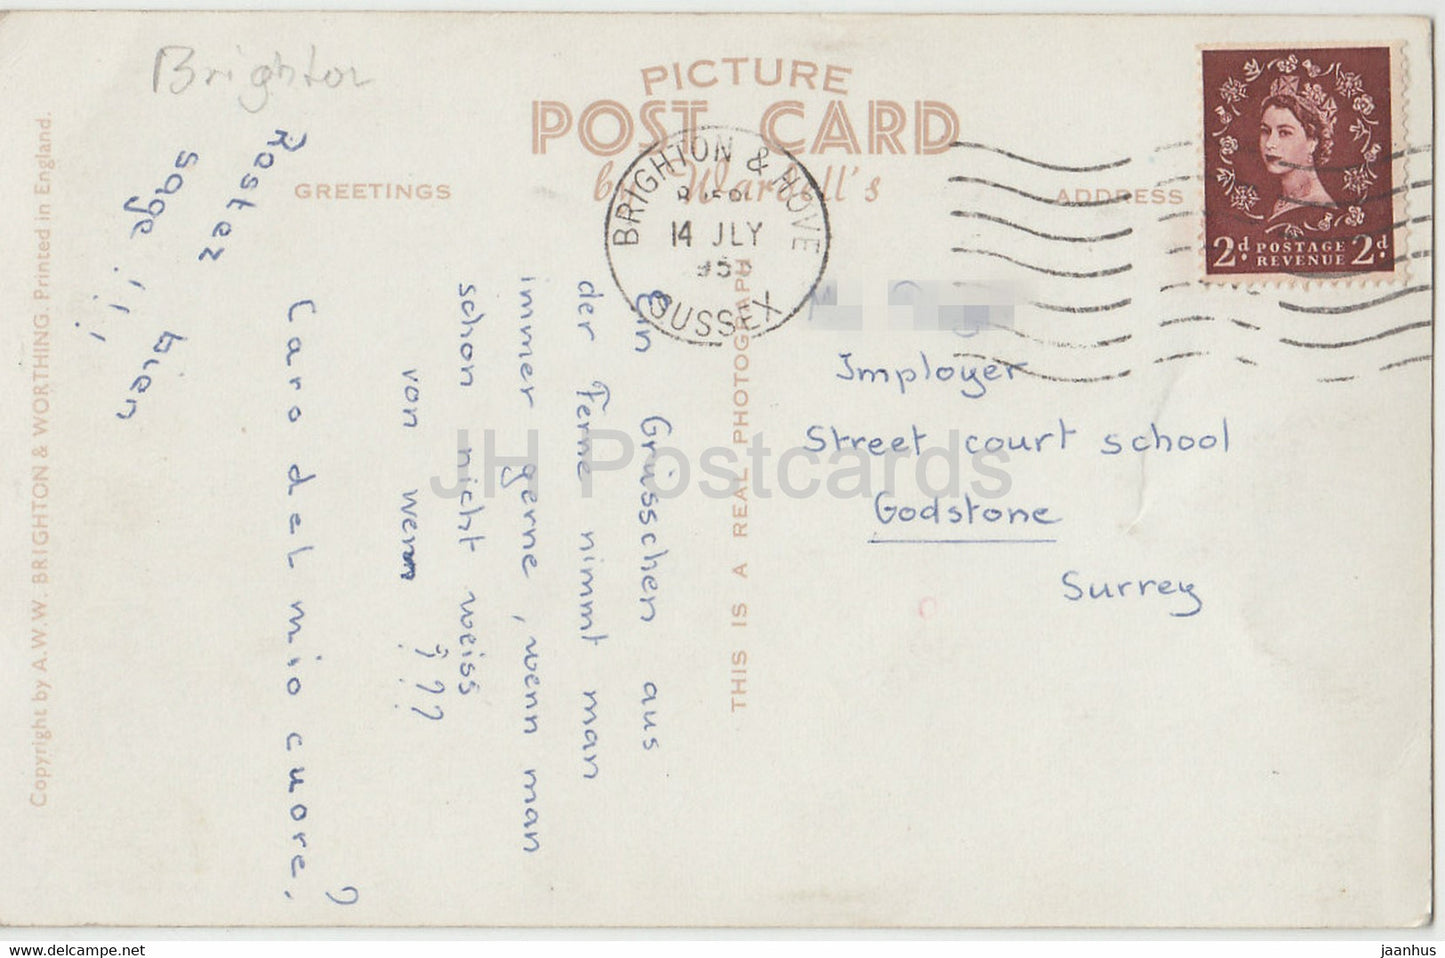 Brighton
PICTURE
POST CARD
by Wardell's
GREETINGS
ADDRESS
BRIGHTON & HOVE
14 JLY
SUSSEX
2d POSTAGE REVENUE 2d
Ein Grüsschen aus
der Ferne nimmt man
immer gerne, wenn man
schon nicht weiss
von wem
???
Caro del mio cuore,
?
sage
bien
!!!
Imployer
Street court school
Godstone
Surrey
THIS IS A REAL PHOTOGRAPH
Copyright by A.W.W. BRIGHTON & WORTHING. Printed in England.
JH Postcards
https://jhpostcards.com
jaanhus